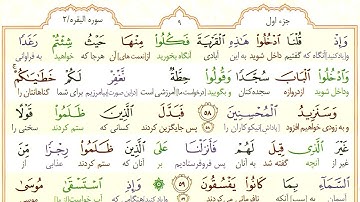 جزء اول ۹ سوره البقره/۲
وَإِذْ قُلْنَا ادْخُلُوا هَٰذِهِ الْقَرْيَةَ فَكُلُوا مِنْهَا حَيْثُ شِئْتُمْ رَغَدًا
و(یادکنید) آنگاه که گفتیم داخل شوید به این آبادی آنگاه بخورید از(نعمت‌های) آن هرجا که خواهید به فراوانی
وَادْخُلُوا الْبَابَ سُجَّدًا وَقُولُوا حِطَّةٌ نَغْفِرْ لَكُمْ خَطَايَاكُمْ
و داخل شوید ازدروازه سجده‌کنان و بگویید آمرزشی است بیامرزیم برای شما گناهانتان را
وَسَنَزِيدُ الْمُحْسِنِينَ ۵۸ فَبَدَّلَ الَّذِينَ ظَلَمُوا قَوْلًا
و به زودی خواهیم افزود نیکوکاران را پس جایگزین کردند کسانی که ستم کردند سخنی را
غَيْرَ الَّذِي قِيلَ لَهُمْ فَأَنْزَلْنَا عَلَى الَّذِينَ ظَلَمُوا رِجْزًا مِنَ
غیر از آنچه گفته شد به آنان پس فروفرستادیم بر آنان که ستم کردند عذابی از
السَّمَاءِ بِمَا كَانُوا يَفْسُقُونَ ۵۹ وَإِذِ اسْتَسْقَىٰ مُوسَىٰ